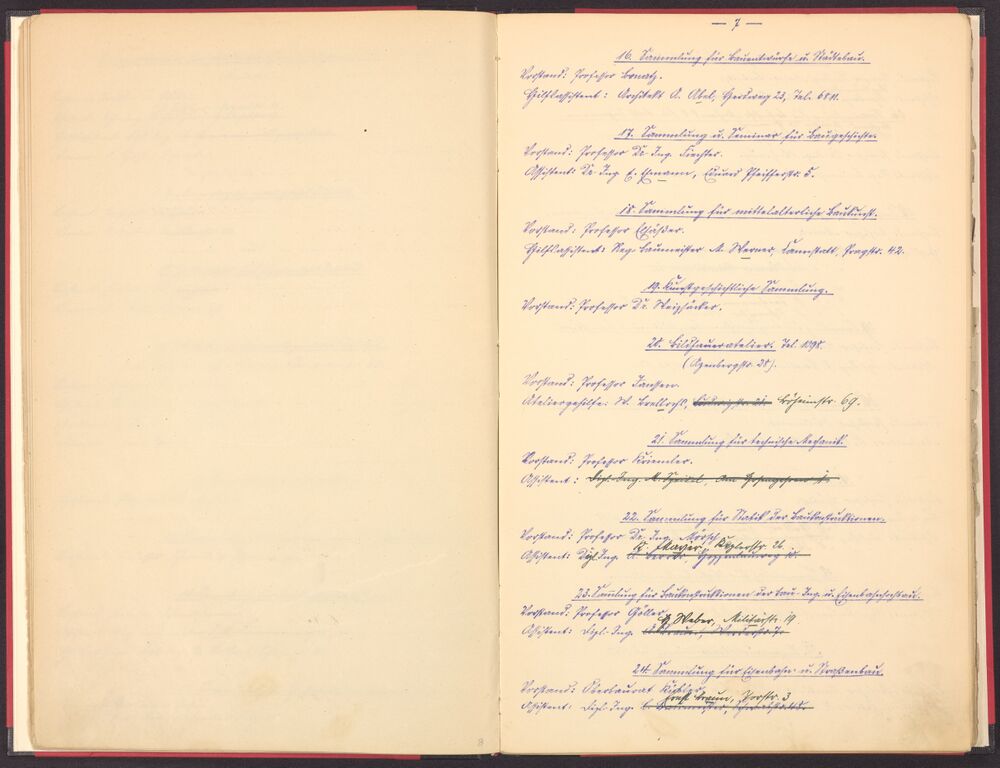 — 7 —
16. Sammlung für Bauentwürfe u. Städtebau.
Vorstand: Professor Bonatz.
Hilfsassistent: Architekt A. Abel, Herdweg 23, Tel. 6811.
17. Sammlung u. Seminar für Baugeschichte.
Vorstand: Professor Dr. Ing. Fiechter.
Assistent: Dr. Ing. E. Eduard Pfeifferstr. 5.
18. Sammlung für mittelalterliche Baukunst.
Vorstand: Professor Elsäßer.
Hilfsassistent: Reg. Baumeister A. Werner, Cannstatt, Pragstr. 42.
19. Kunstgeschichtliche Sammlung.
Vorstand: Professor Dr. Weizsäcker.
20. Bildhaueratelier. Tel. 1398.
(Azenbergstr. 38).
Vorstand: Professor Janssen.
Ateliergehilfe: W. Böheimstr. 69.
21. Sammlung für technische Mechanik.
Vorstand: Professor Kriemler.
Assistent: Dipl.-Ing. M.
22. Sammlung für Statik der Baukonstruktionen.
Vorstand: Professor Dr. Ing. Mörsch
K. Mayer, Keplerstr. 26
Assistent: Dipl. Ing.
23. Samlung für Baukonstruktionen der Bau-Ing. u. Eisenbahnhochbau.
Vorstand: Professor Göller
Weber, Militärstr. 19
Assistent: Dipl.-Ing.
24. Sammlung für Eisenbahn- u. Straßenbau.
Vorstand: Oberbaurat Kübler
Ernst Braun, 3
Assistent: Dipl.-Ing.
8